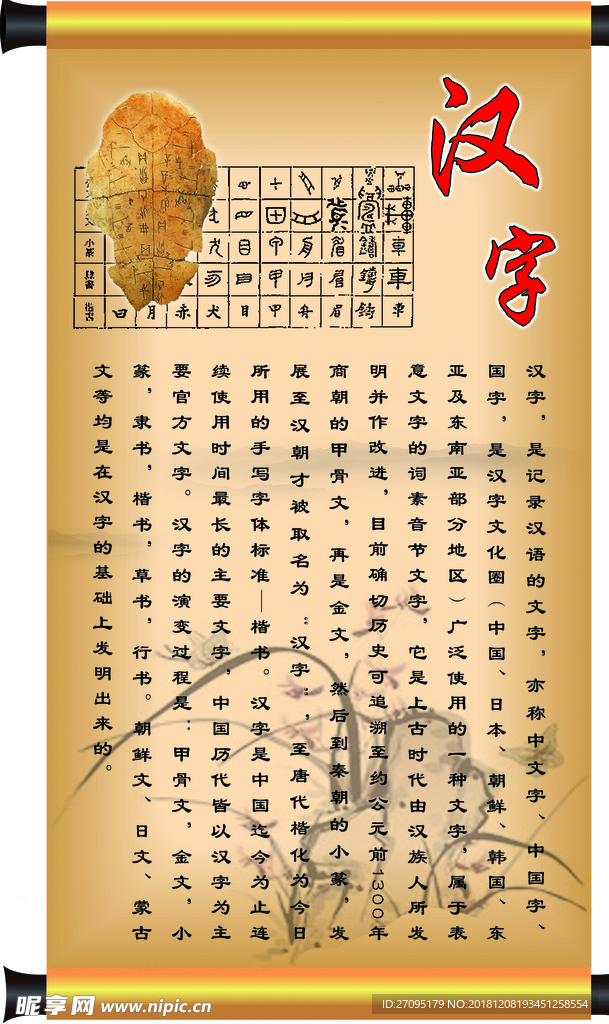 汉字
小篆
日 月 赤 犬 目 甲 舟 眉 车
汉字，是记录汉语的文字，亦称中文字、中国字、
国字，是汉字文化圈（中国、日本、朝鲜、韩国、东
亚及东南亚部分地区）广泛使用的一种文字，属于表
意文字的词素音节文字，它是上古时代由汉族人所发
明并作改进，目前确切历史可追溯至约公元前1300年
商朝的甲骨文，再是金文，然后到秦朝的小篆，发
展至汉朝才被取名为“汉字”，至唐代楷化为今日
所用的手写字体标准—楷书。汉字是中国迄今为止连
续使用时间最长的主要文字，中国历代皆以汉字为主
要官方文字。汉字的演变过程是：甲骨文，金文，小
篆，隶书，楷书，草书，行书。朝鲜文、日文、蒙古
文等均是在汉字的基础上发明出来的。
昵享网 www.nipic.cn
ID:27095179 NO:20181208193451258554